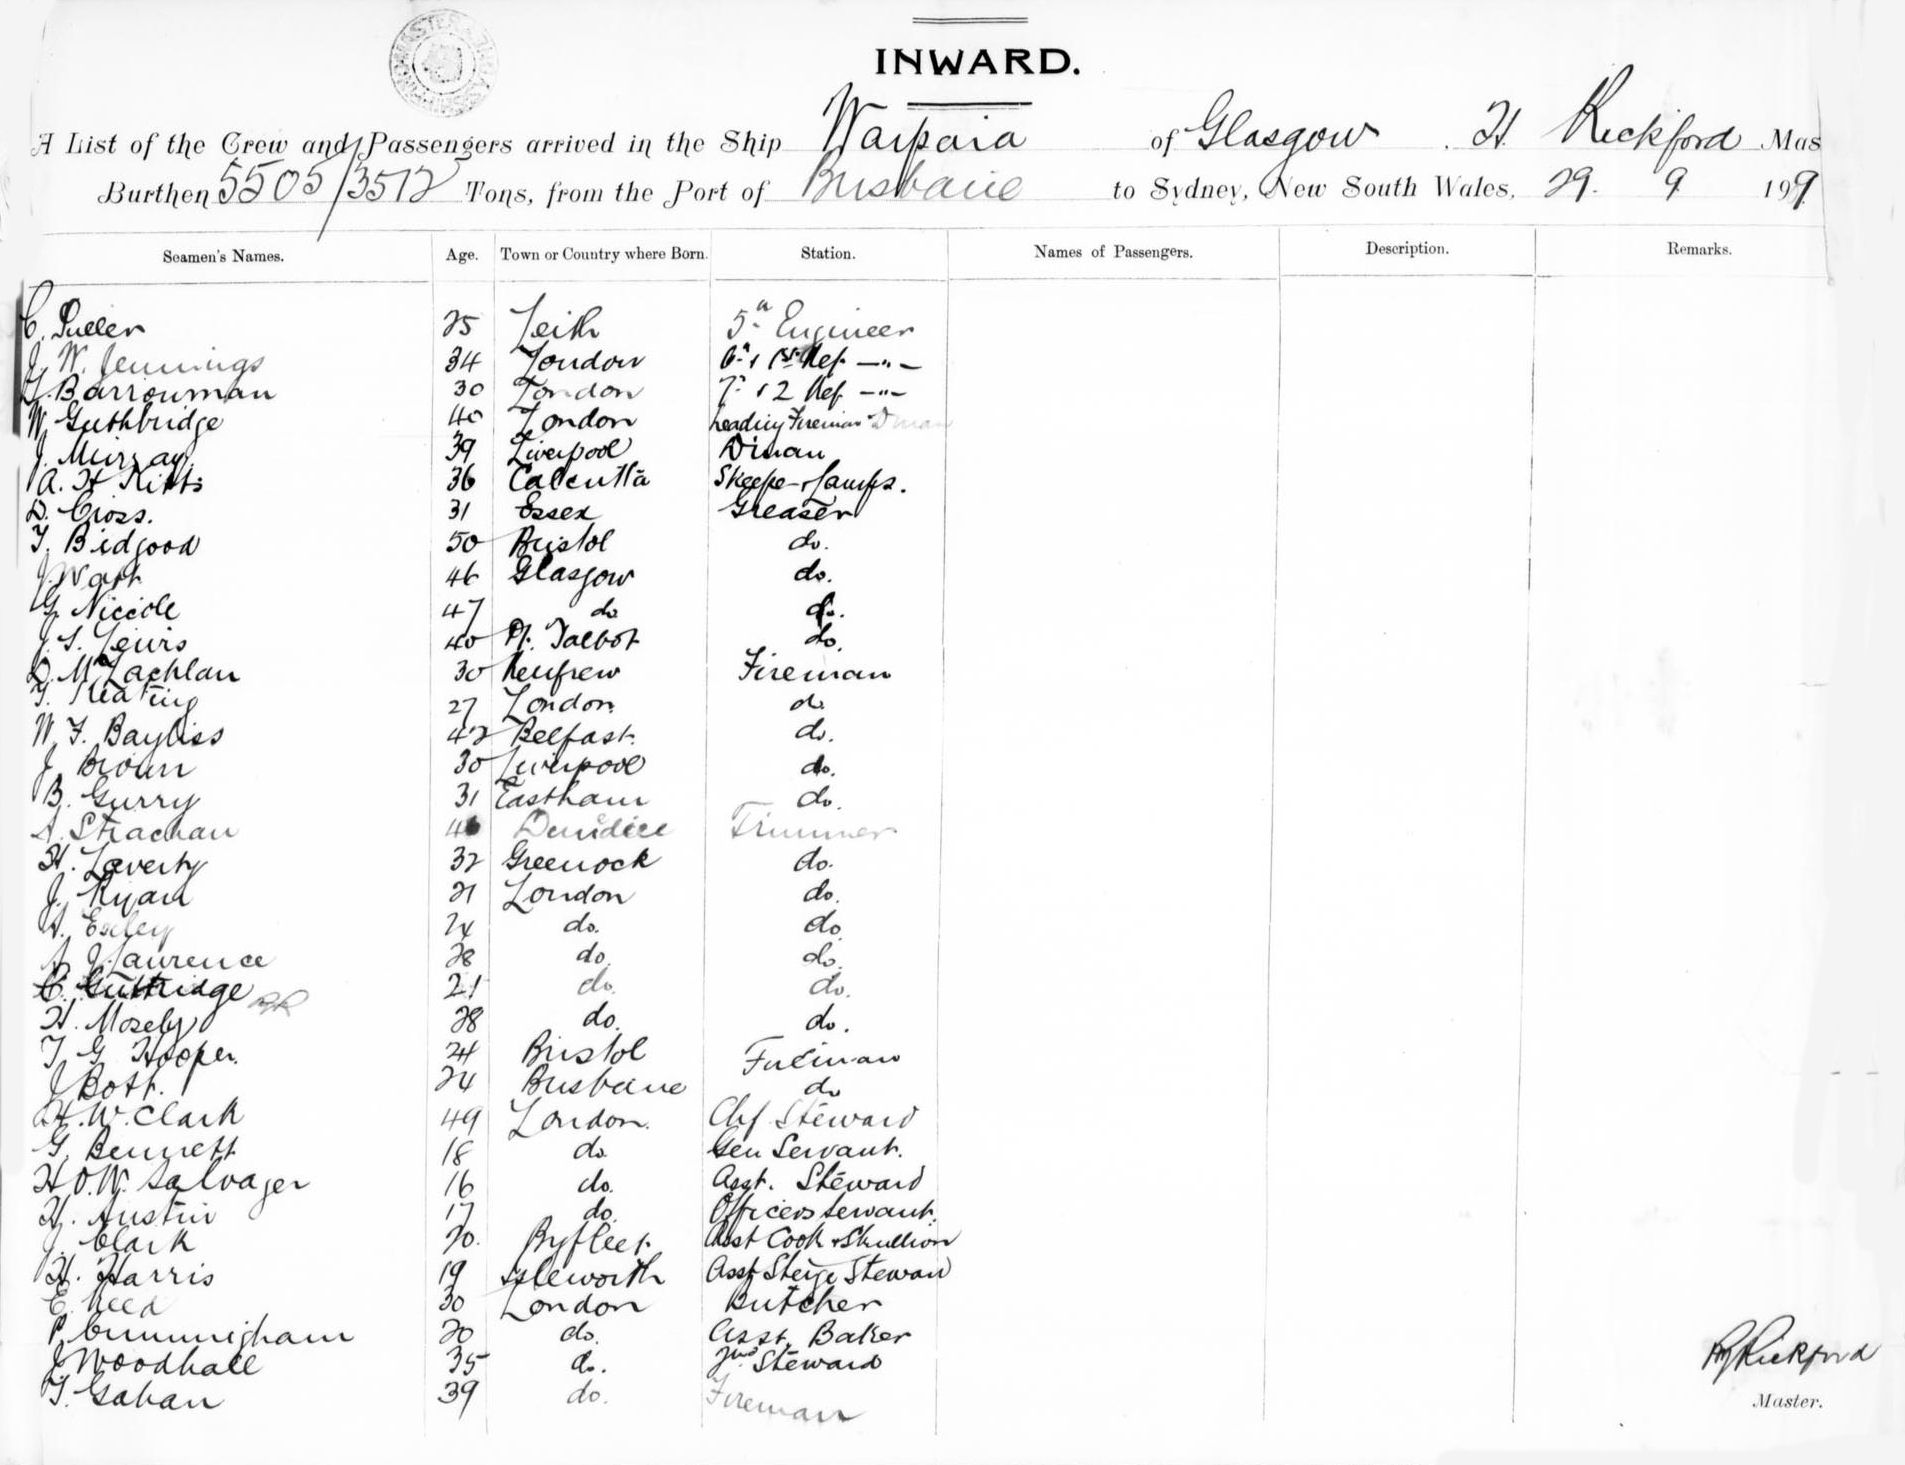 INWARD.
A List of the Crew and Passengers arrived in the Ship Waipara of Glasgow. H. Rickford Mas
Burthen 5505/3512 Tons, from the Port of Brisbane to Sydney, New South Wales, 29. 9 199.
Seamen's Names. Age. Town or Country where Born. Station. Names of Passengers. Description. Remarks.
C. 25 Leith 5th Engineer
J. W. Jennings 34 London 6th & 1st Ref. —"—
Barrowman 30 London 7th & 2 Ref —"—
W. Guthbridge 40 London Leading Fireman Dman
J. Murray 39 Liverpool D'man
A. H. Kitts 36 Calcutta Skeeper & Lamps.
D. Cross. 31 Essex Greaser
T. Bidgood 50 Bristol do.
J. Watt 46 Glasgow do.
G. Niccole 47 do do.
J. S. Lewis 40 Pt. Talbot do.
D. McLachlan 30 Renfrew Fireman
T. Keating 27 London do.
W. F. Bayliss 42 Belfast. do.
J. Brown 30 Liverpool do.
B. Gurry 31 Eastham do.
A. Strachan 46 Dundee Trimmer
H. Laverty 32 Greenock do.
J. Ryan 21 London do.
A. Exley 24 do. do.
A. J. Laurence 28 do. do.
C. Guttridge 21 do. do.
H. Mosely 28 do. do.
T. G. Hooper. 24 Bristol Fireman
J. Bott. 24 Brisbane do
H. W. Clark 49 London. Chf Steward
G. Bennett 18 do. Gen Servant.
H. O. W. Salvager 16 do. Asst. Steward
H. Austin 17 do. Officers servant.
J. Clark 20. Byfleet. Asst Cook & Skullion
H. Harris 19 Isleworth Asst Sterge Steward
E. Reed 30 London Butcher
P. Cunningham 20 do. Asst. Baker
J. Woodhall 35 do. 2nd Steward
T. Gahan 39 do. Fireman
Rickford
Master.